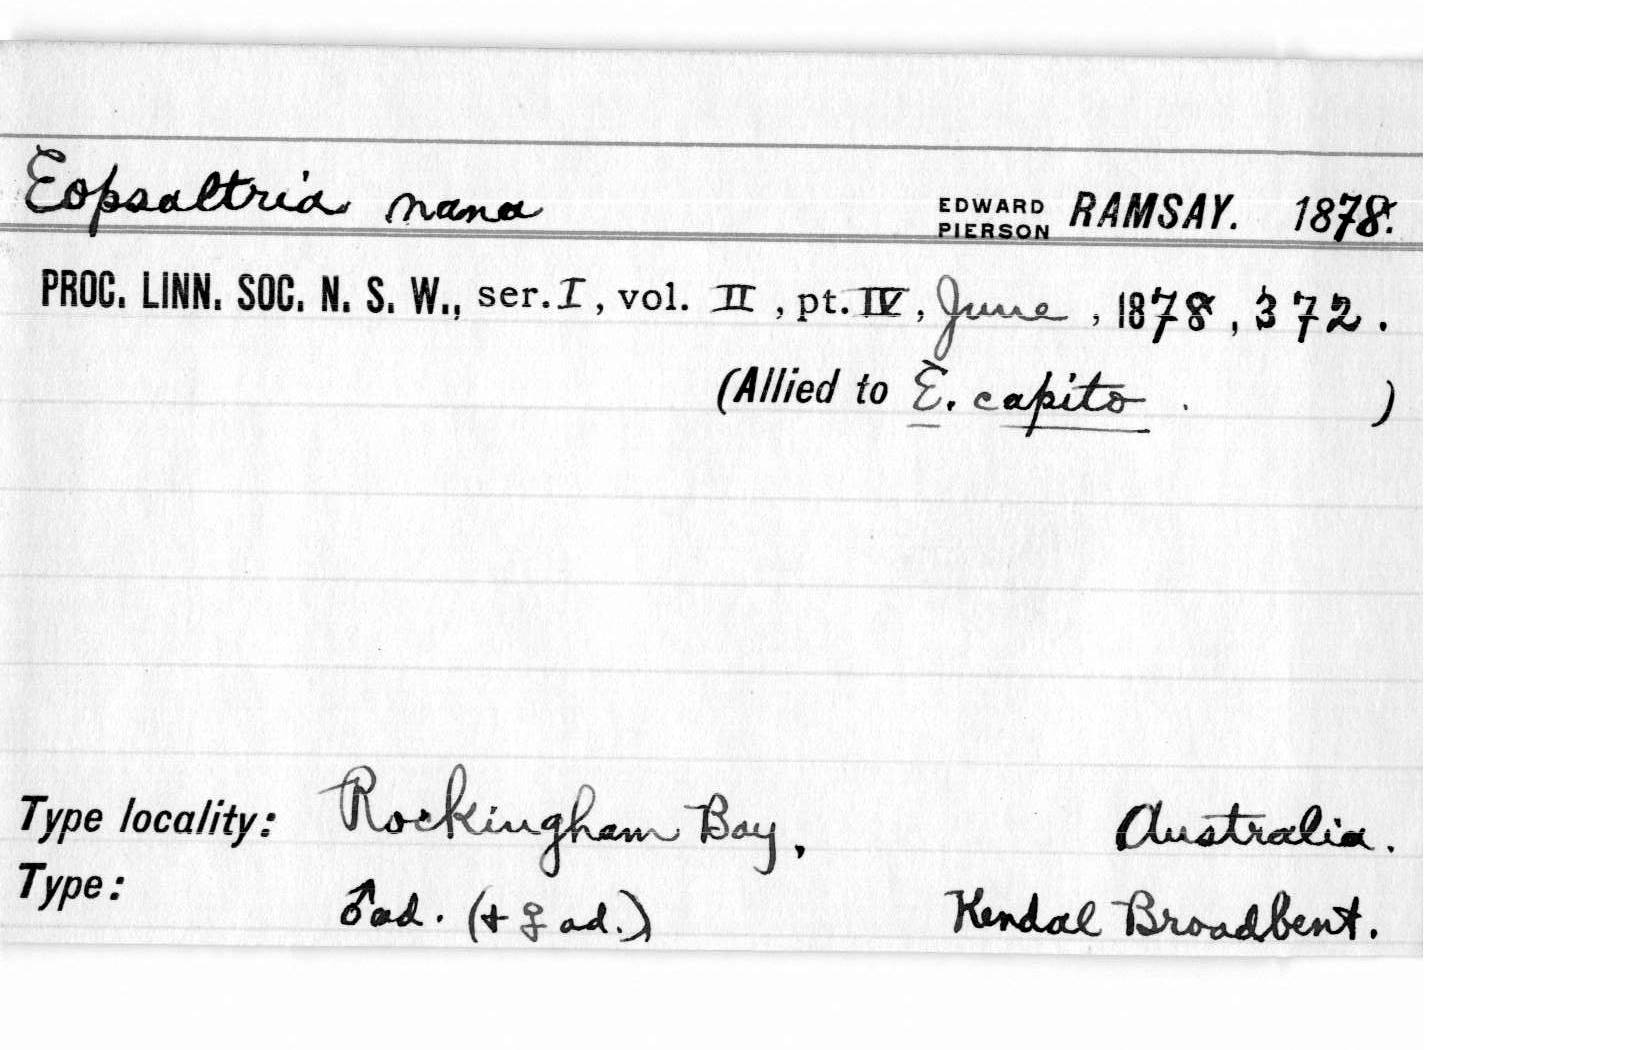 Eopsaltria nana EDWARD PIERSON RAMSAY. 1878.
PROC. LINN. SOC. N. S. W., ser. I, vol. II, pt. IV, June, 1878, 372.
(Allied to E. capito. )
Type locality: Rockingham Bay, Australia.
Type: ♂ad. (+ ♀ ad.) Kendal Broadbent.